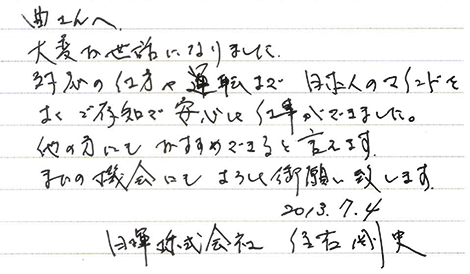 曲さんへ
大変お世話になりました。
対応の仕方や運転まで 日本人のマインドを
よくご存知で安心して仕事ができました。
他の方にも おすすめできると言えます。
またの機会にも よろしく御願い致します。
2013.7.4
日揮株式会社